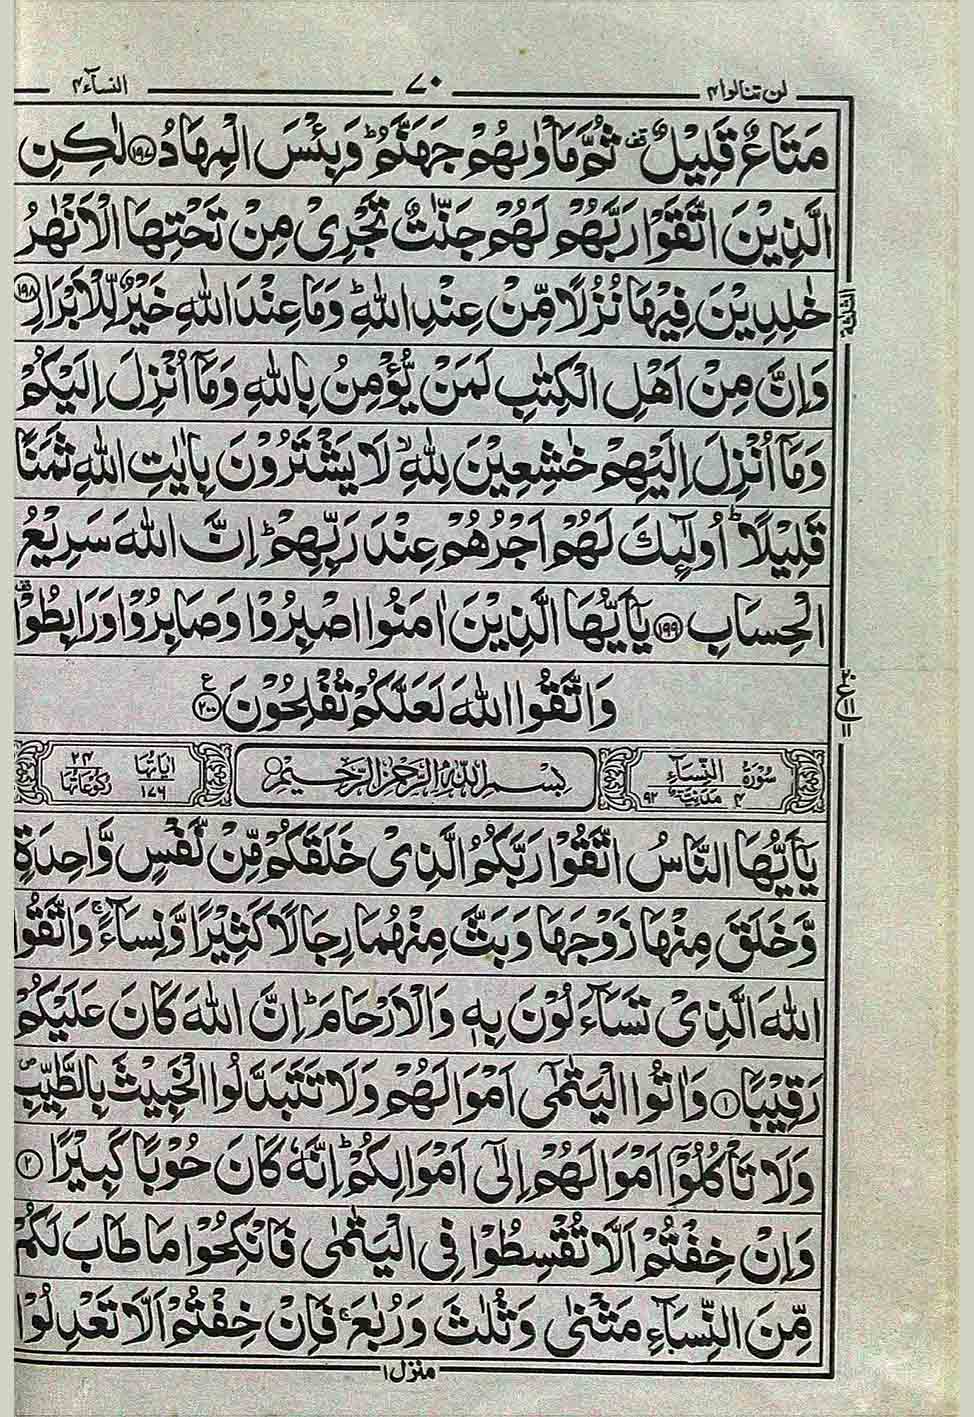 لن تنالوا ۴ ۷۰ النسآء ۴
مَتَاعٌ قَلِيْلٌ ۣ ثُمَّ مَاْوٰىهُمْ جَهَنَّمُ ؕ وَبِئْسَ الْمِهَادُ ﴿۱۹۷﴾ لٰكِنِ
الَّذِيْنَ اتَّقَوْا رَبَّهُمْ لَهُمْ جَنّٰتٌ تَجْرِىْ مِنْ تَحْتِهَا الْاَنْهٰرُ
خٰلِدِيْنَ فِيْهَا نُزُلًا مِّنْ عِنْدِ اللّٰهِ ؕ وَمَا عِنْدَ اللّٰهِ خَيْرٌ لِّلْاَبْرَارِ ﴿۱۹۸﴾
وَاِنَّ مِنْ اَهْلِ الْكِتٰبِ لَمَنْ يُّؤْمِنُ بِاللّٰهِ وَمَاۤ اُنْزِلَ اِلَيْكُمْ
وَمَاۤ اُنْزِلَ اِلَيْهِمْ خٰشِعِيْنَ لِلّٰهِ ۙ لَا يَشْتَرُوْنَ بِاٰيٰتِ اللّٰهِ ثَمَنًا
قَلِيْلًا ؕ اُولٰٓئِكَ لَهُمْ اَجْرُهُمْ عِنْدَ رَبِّهِمْ ؕ اِنَّ اللّٰهَ سَرِيْعُ
الْحِسَابِ ﴿۱۹۹﴾ يٰۤاَيُّهَا الَّذِيْنَ اٰمَنُوا اصْبِرُوْا وَصَابِرُوْا وَرَابِطُوْا ۣ
وَاتَّقُوا اللّٰهَ لَعَلَّكُمْ تُفْلِحُوْنَ ﴿۲۰۰﴾ ع
۲۰ ع ۱۱ ۱۱
سُوْرَةُ النِّسَآءِ ۴ مَدَنِيَّةٌ ۹۲ بِسْمِ اللّٰهِ الرَّحْمٰنِ الرَّحِيْمِ اٰيَاتُهَا ۱۷۶ ۲۴ رُكُوْعَاتُهَا
يٰۤاَيُّهَا النَّاسُ اتَّقُوْا رَبَّكُمُ الَّذِىْ خَلَقَكُمْ مِّنْ نَّفْسٍ وَّاحِدَةٍ
وَّخَلَقَ مِنْهَا زَوْجَهَا وَبَثَّ مِنْهُمَا رِجَالًا كَثِيْرًا وَّنِسَآءً ۚ وَاتَّقُوا
اللّٰهَ الَّذِىْ تَسَآءَلُوْنَ بِهٖ وَالْاَرْحَامَ ؕ اِنَّ اللّٰهَ كَانَ عَلَيْكُمْ
رَقِيْبًا ﴿۱﴾ وَاٰتُوا الْيَتٰمٰىۤ اَمْوَالَهُمْ وَلَا تَتَبَدَّلُوا الْخَبِيْثَ بِالطَّيِّبِ ۪
وَلَا تَاْكُلُوْۤا اَمْوَالَهُمْ اِلٰٓى اَمْوَالِكُمْ ؕ اِنَّهٗ كَانَ حُوْبًا كَبِيْرًا ﴿۲﴾
وَاِنْ خِفْتُمْ اَلَّا تُقْسِطُوْا فِى الْيَتٰمٰى فَانْكِحُوْا مَا طَابَ لَكُمْ
مِّنَ النِّسَآءِ مَثْنٰى وَثُلٰثَ وَرُبٰعَ ۚ فَاِنْ خِفْتُمْ اَلَّا تَعْدِلُوْا
منزل ۱